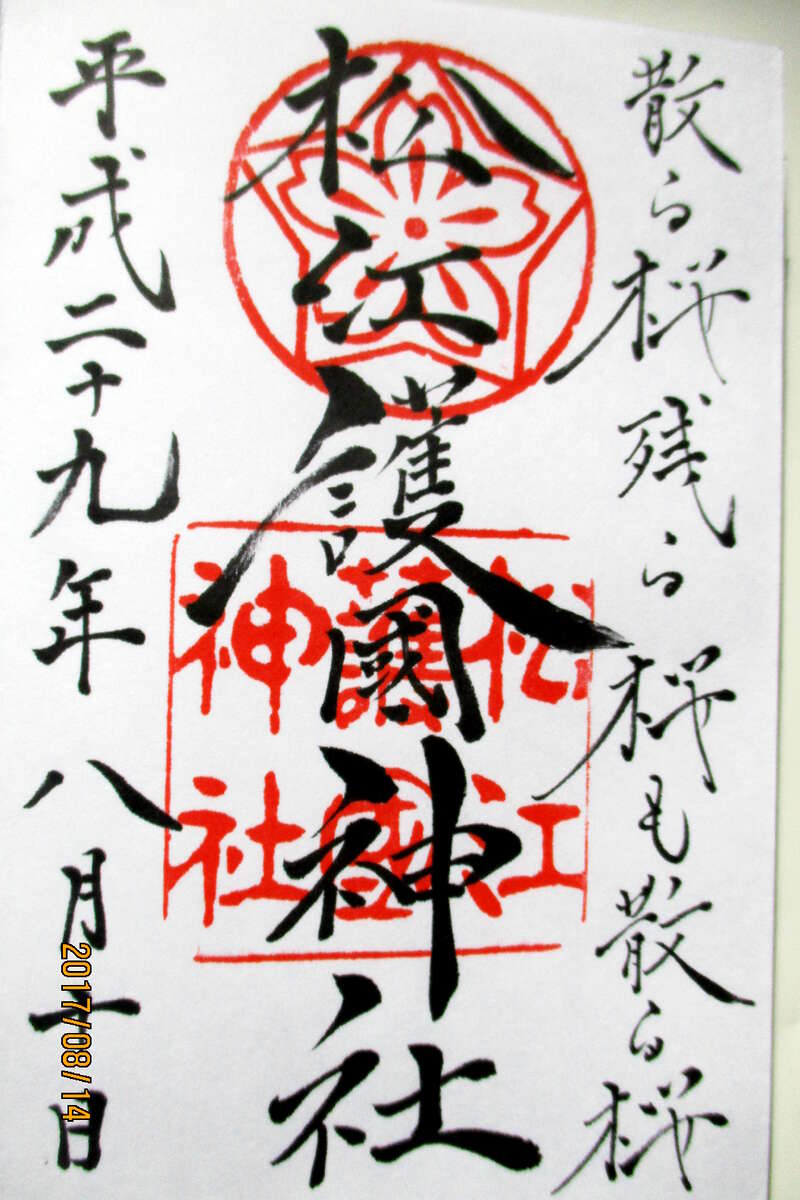 散る桜残る桜も散る桜
松江護國神社
平成二十九年八月 日
松江
護國
神社
2017/08/14